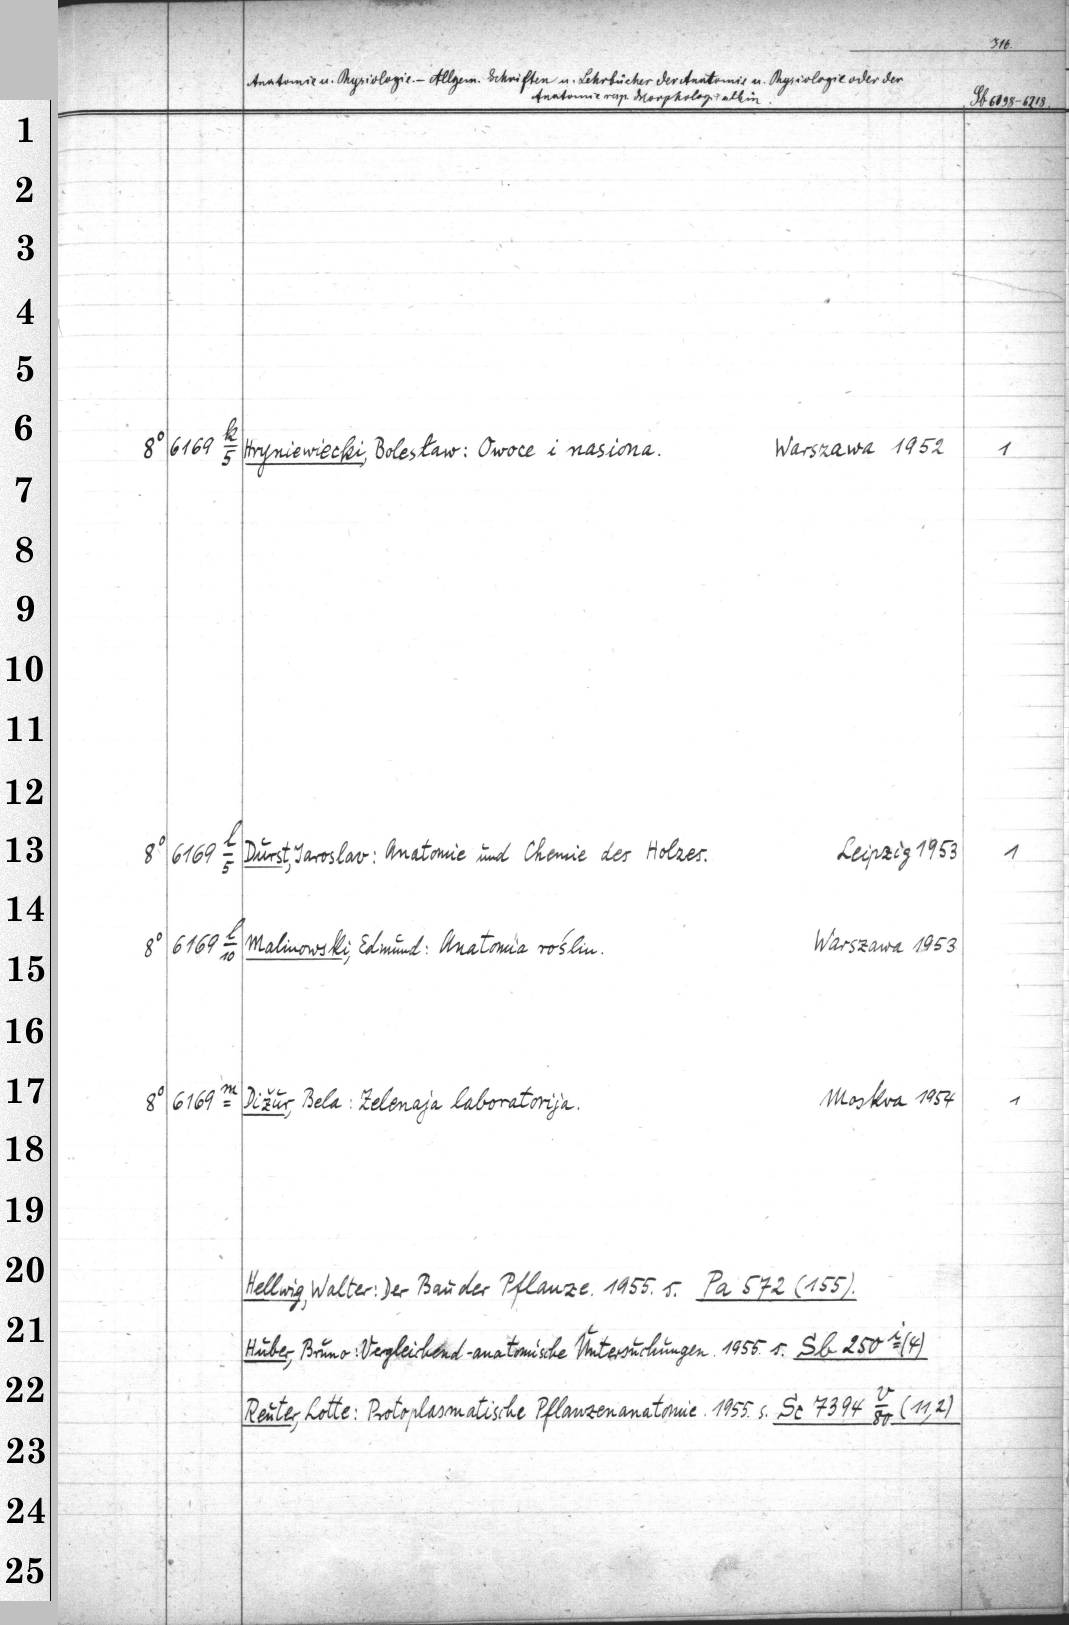 316.
Anatomie u. Physiologie. – Allgem. Schriften u. Lehrbücher der Anatomie u. Physiologie oder der
Anatomie resp. Morphologie allein.
Sb 6098-6218.
1
2
3
4
5
6
8° 6169 k/5 Hryniewiecki, Bolesław: Owoce i nasiona. Warszawa 1952 1
7
8
9
10
11
12
13
8° 6169 l/5 Durst, Jaroslav: Anatomie und Chemie des Holzes. Leipzig 1953 1
14
8° 6169 l/10 Malinowski, Edmund: Anatomia roślin. Warszawa 1953
15
16
17
8° 6169 m Dižur, Bela: Zelenaja laboratorija. Moskva 1954 1
18
19
20
Hellwig, Walter: Der Bau der Pflanze. 1955. s. Pa 572 (155).
21
Huber, Bruno: Vergleichend-anatomische Untersuchungen. 1955. s. Sb 250 i (4)
22
Reuter, Lotte: Protoplasmatische Pflanzenanatomie. 1955. s. Sc 7394 v/80 (11,2)
23
24
25